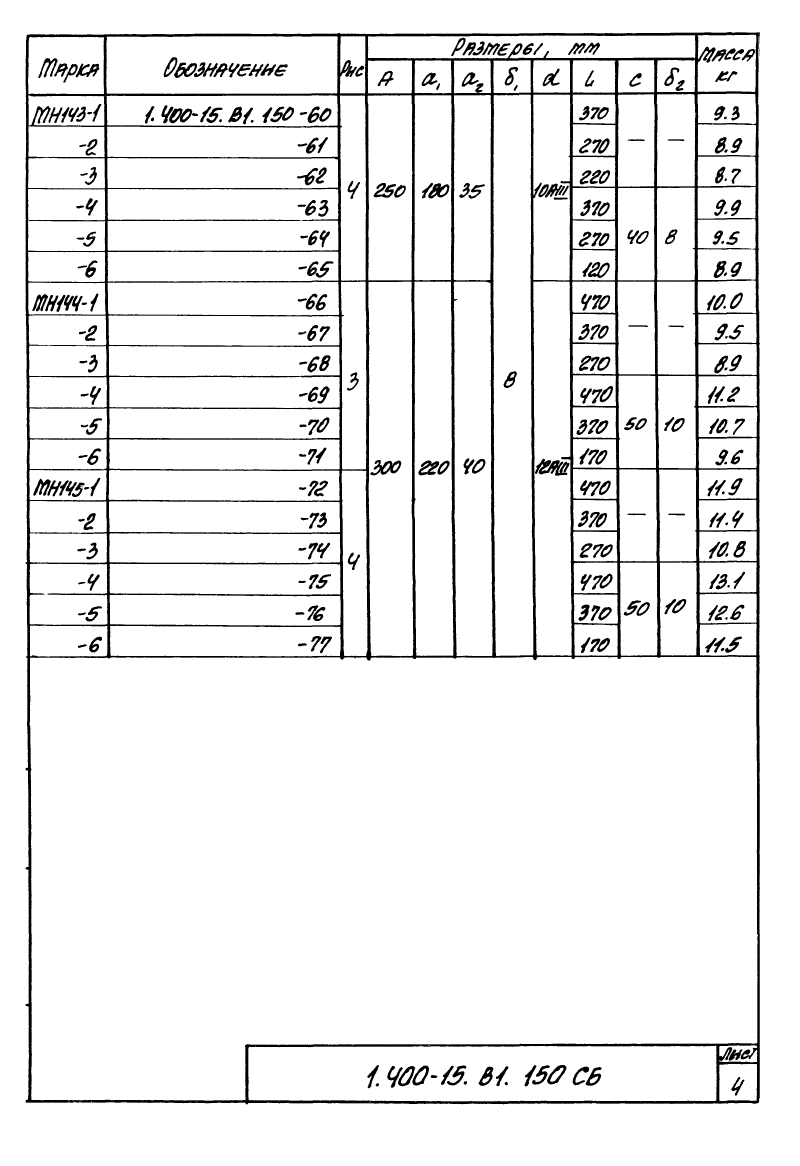 Марка Обозначение Рис Размеры, мм Масса кг
А а₁ а₂ δ₁ d L с δ₂
МН143-1 1.400-15. В1. 150 -60 4 250 180 35 8 10АIII 370 — — 9.3
-2 -61 270 8.9
-3 -62 220 8.7
-4 -63 370 40 8 9.9
-5 -64 270 9.5
-6 -65 120 8.9
МН144-1 -66 3 300 220 40 12АIII 470 — — 10.0
-2 -67 370 9.5
-3 -68 270 8.9
-4 -69 470 50 10 11.2
-5 -70 370 10.7
-6 -71 170 9.6
МН145-1 -72 4 470 — — 11.9
-2 -73 370 11.4
-3 -74 270 10.8
-4 -75 470 50 10 13.1
-5 -76 370 12.6
-6 -77 170 11.5
1.400-15. В1. 150 СБ
Лист
4